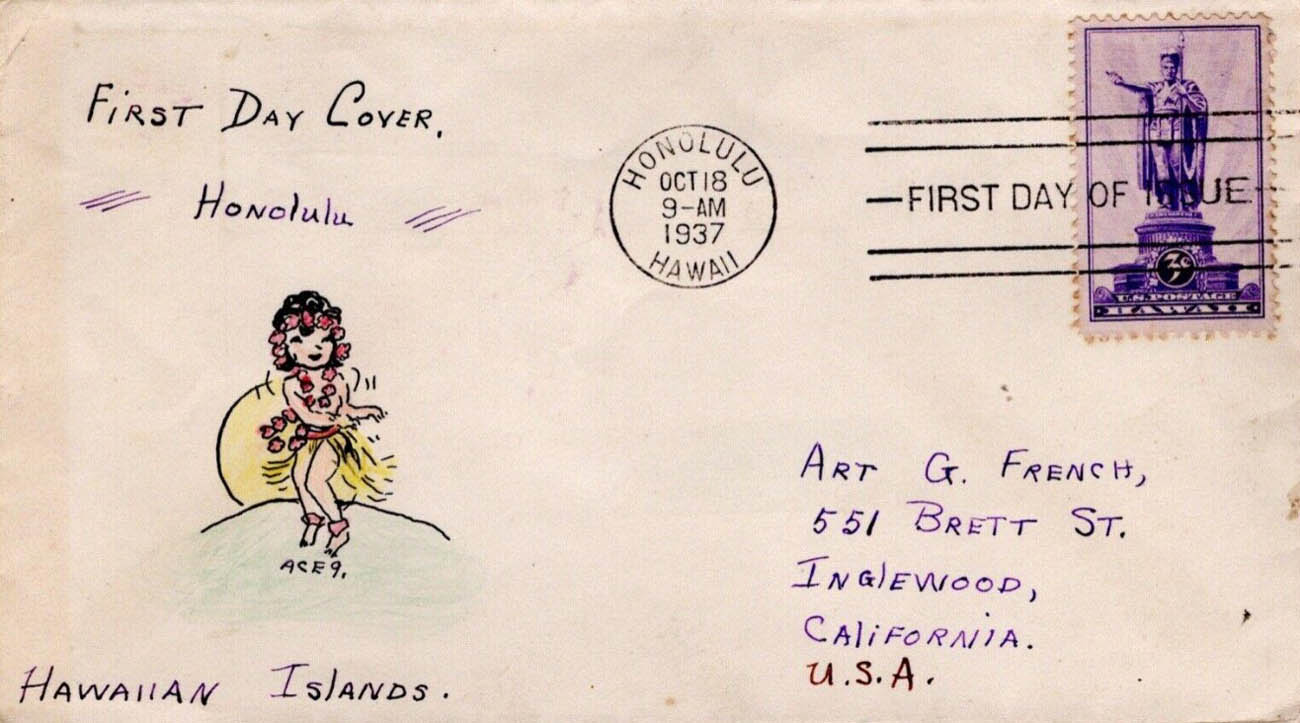 First Day Cover.
Honolulu
HONOLULU
OCT 18
9-AM
1937
HAWAII
FIRST DAY OF ISSUE
3¢
U.S. POSTAGE
HAWAII
ACE9.
Art G. French,
551 Brett St.
Inglewood,
California.
U.S.A.
Hawaiian Islands.